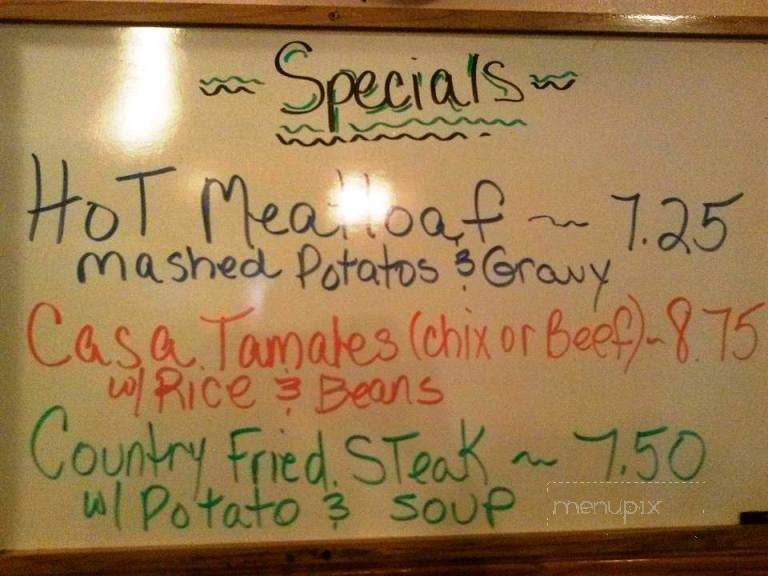 ~ Specials ~
Hot Meatloaf ~ 7.25
Mashed Potatos & Gravy
Casa Tamales (chix or Beef) ~ 8.75
w/ Rice & Beans
Country Fried Steak ~ 7.50
w/ Potato & Soup
menupix